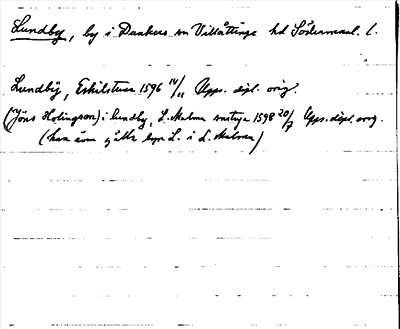 Lundby, by i Dunkers sn Villåttinge hd Södermanl. l.
Lundbÿ, Eskilstuna 1596 14/11 Upps. dipl. orig.
(Jöns Holingson) i Lundby, L. Malma 1598 20/7 Upps. dipl. orig.
(kan även gälla byn L. i L. Malma)